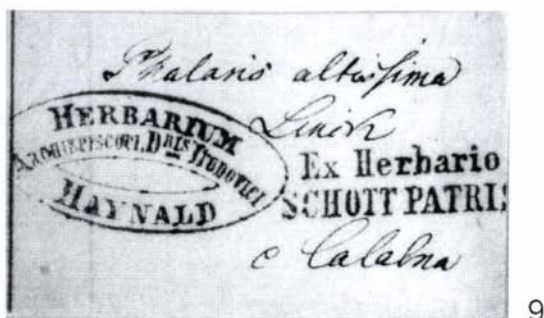 Phalaris altissima
HERBARIUM
ARCHIEPISCOPI. DRIS LUDOVICI
HAYNALD
Ex Herbario
SCHOTT PATRIS
c Calabria
9